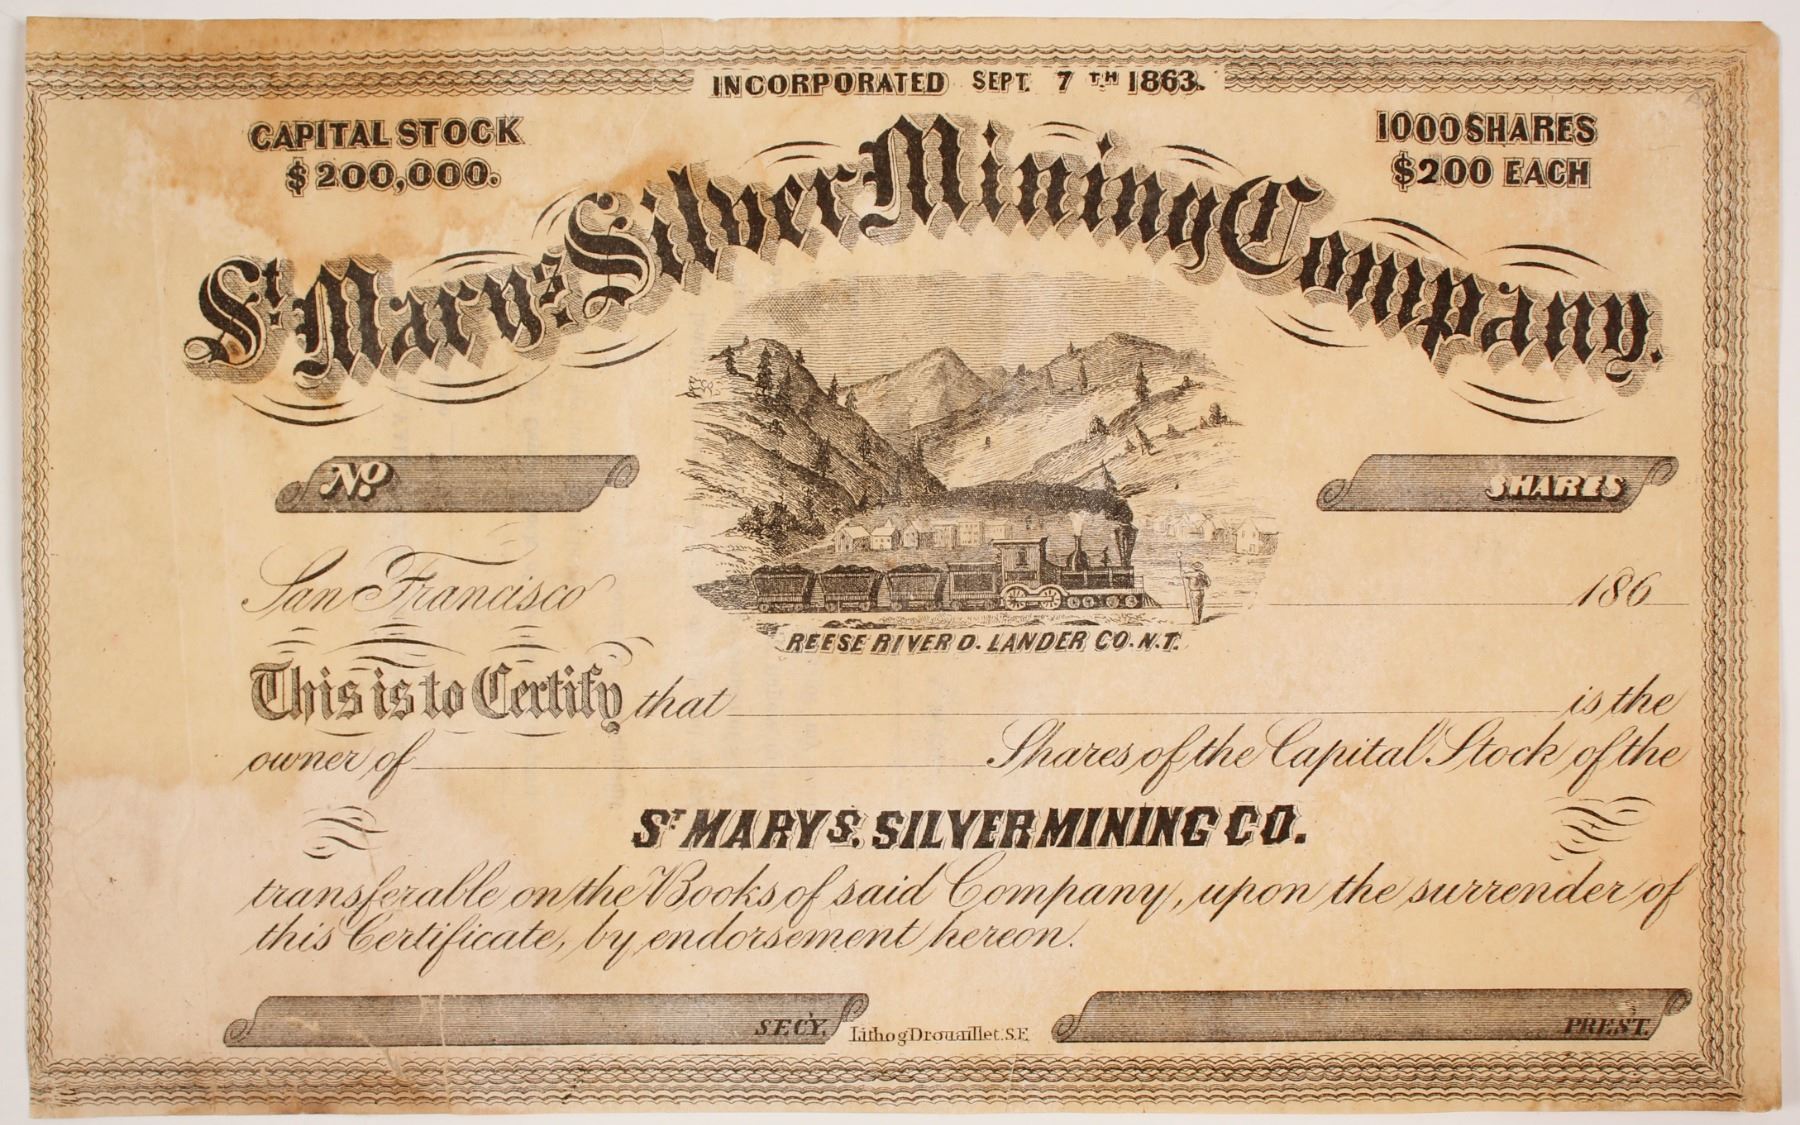 INCORPORATED SEPT. 7TH 1863.
CAPITAL STOCK
$200,000.
1000 SHARES
$200 EACH
St. Marys Silver Mining Company.
No.
SHARES
San Francisco 186
REESE RIVER D. LANDER CO. N.T.
This is to Certify that is the
owner of Shares of the Capital Stock of the
ST. MARYS. SILVER MINING CO.
transferable on the Books of said Company, upon the surrender of
this Certificate, by endorsement hereon.
SECY.
Lithog Drouaillet. S.F.
PREST.